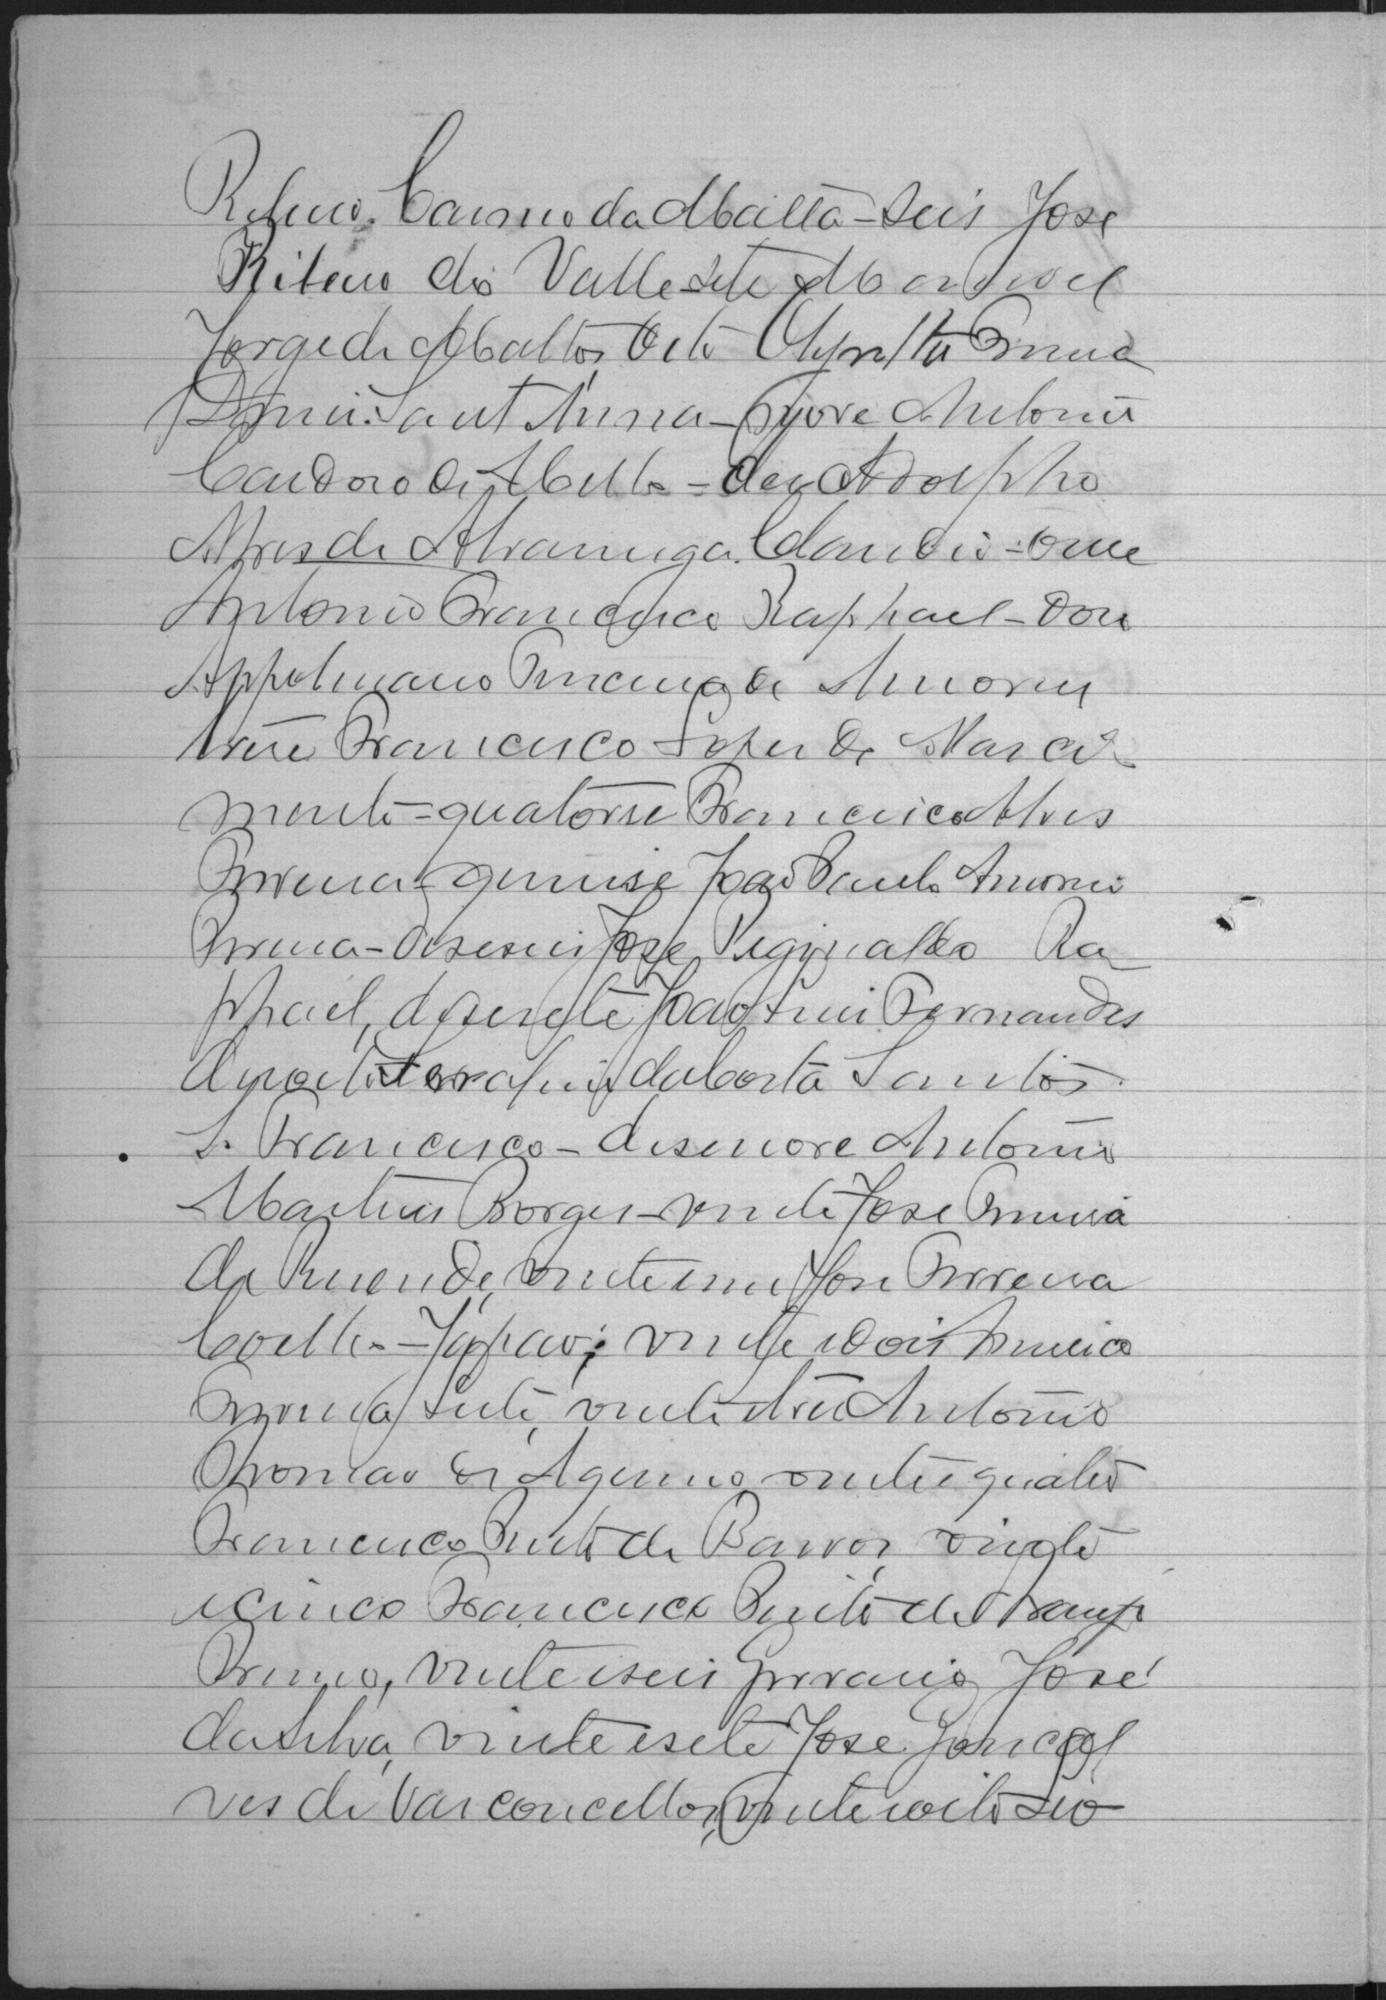 Carmo da Matta - seis José
Ribeiro do Valle - sete Manoel
Jorge de Mattos, oito Olyntho
Sant'Anna - nove Antonio
Cardoso de Mello - dez Adolpho
Alves de Alvarenga Claudio - onze
Antonio Francisco Raphael - doze
de Amorim
treze Francisco Lopes de
mento - quatorze Francisco Alves
Pereira - quinze João Paulo
Pereira - deseseis José Reginaldo Ra
phael, desesete João Luis Fernandes
desoito Serafim da Costa Santos
S. Francisco - desenove Antonio
Martins Borges - vinte José Pereira
de Resende, vinte e um José Ferreira
Coelho - vinte e dois Americo
Ferreira Leite, vinte e tres Antonio
Thomas de Aquino vinte e quatro
Francisco Pinto de Barros, vinte
e cinco Francisco Pinto de Araujo
Primo, vinte e seis Gervasio José
da Silva, vinte e sete José Gonçal
ves de Vasconcellos, vinte e oito Leo